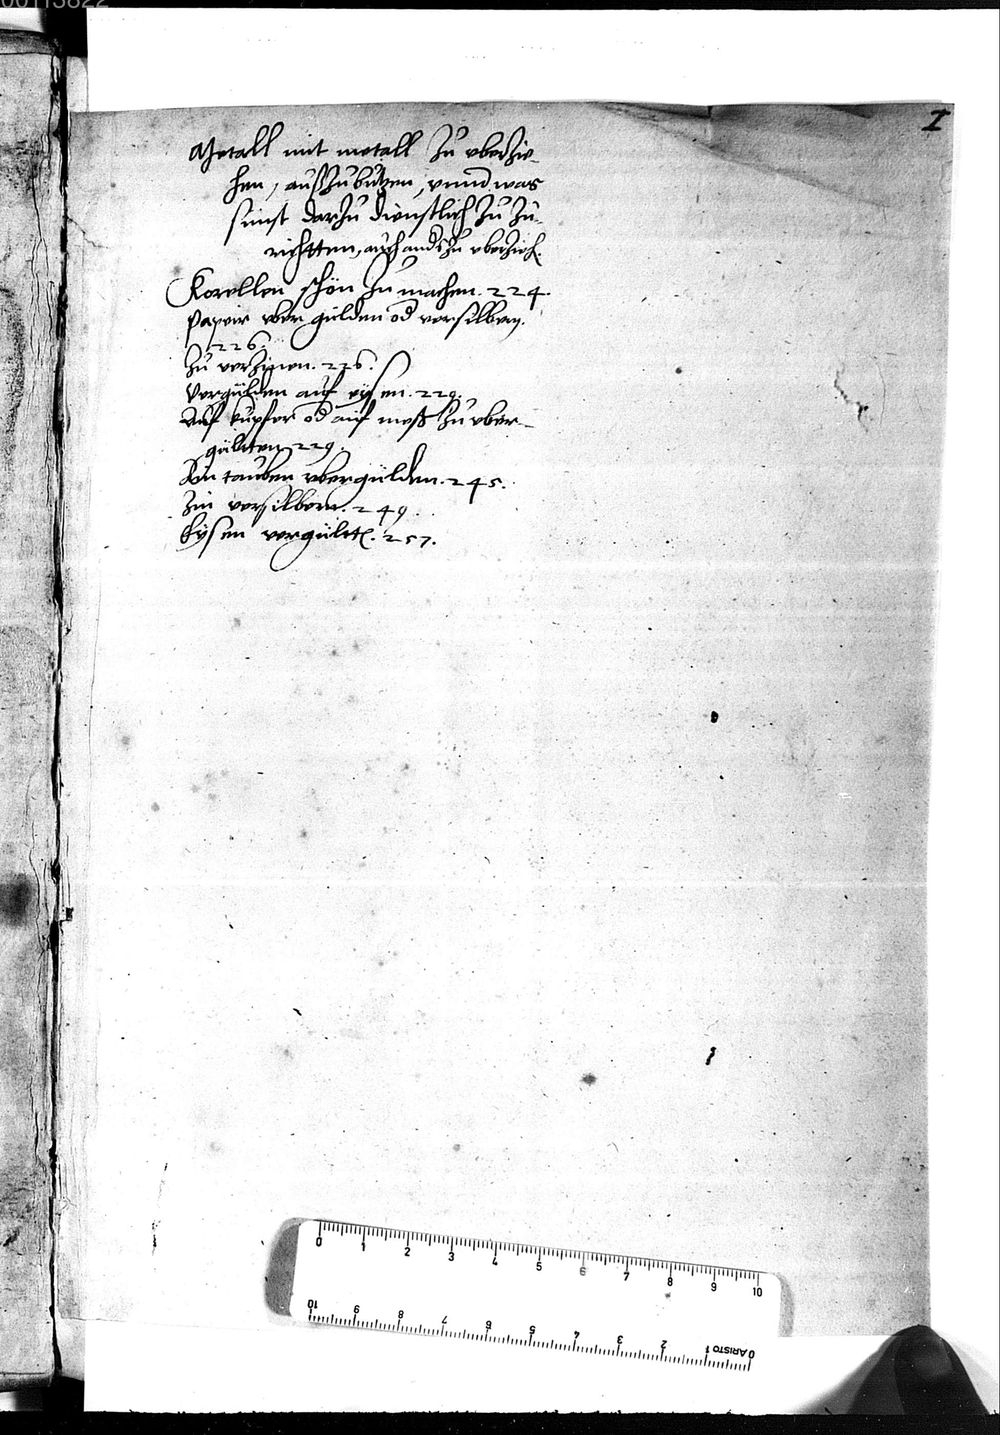 I
Metall mit metall zu uberzie-
hen, außzubutzen, vnnd was
sunst darzu dienstlich zu zu-
richtten, auch anders zu uberzieh.
Korellen schön zu machen. 224.
Papeir uber gulden od versilbern.
226.
Zu verzinen. 226.
Vergulden auf eysen. 229.
Auf kupfer od auf meß zu uber-
gulten 229.
Ein tauben ubergülden. 245.
Zin versilbern. 249.
Eysen vergült. 257.
0 1 2 3 4 5 6 7 8 9 10
10 9 8 7 6 5 4 3 2 1 0 ARISTO